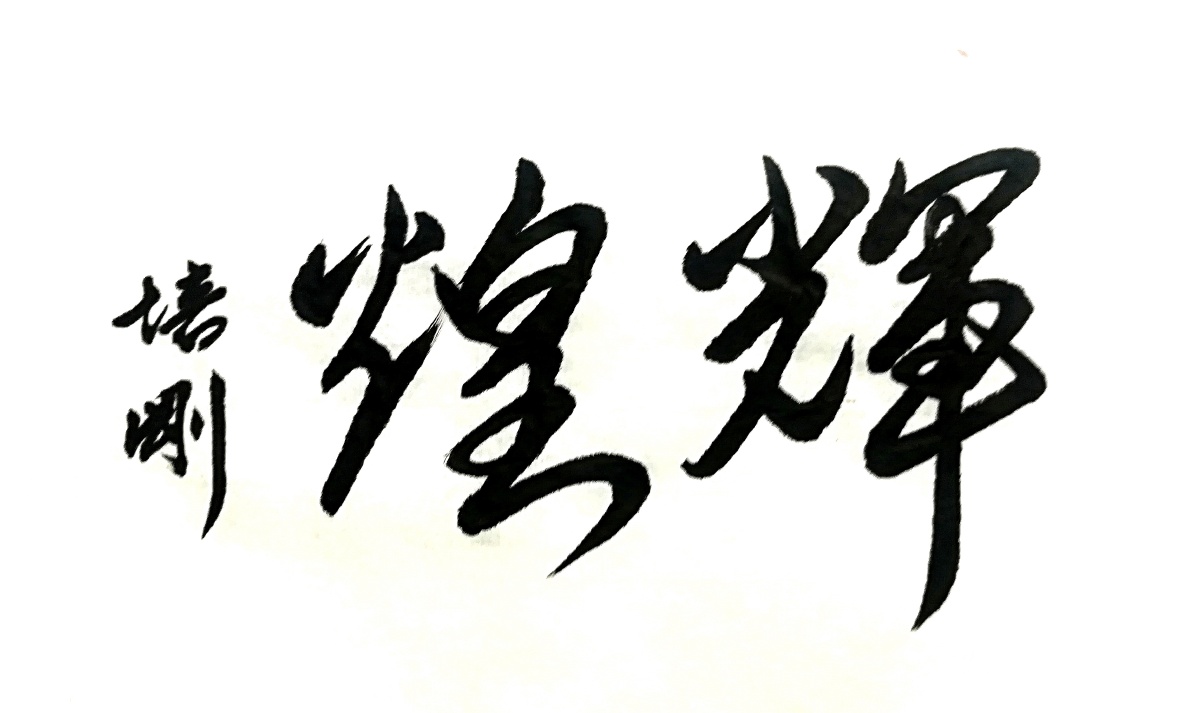 輝煌
培剛